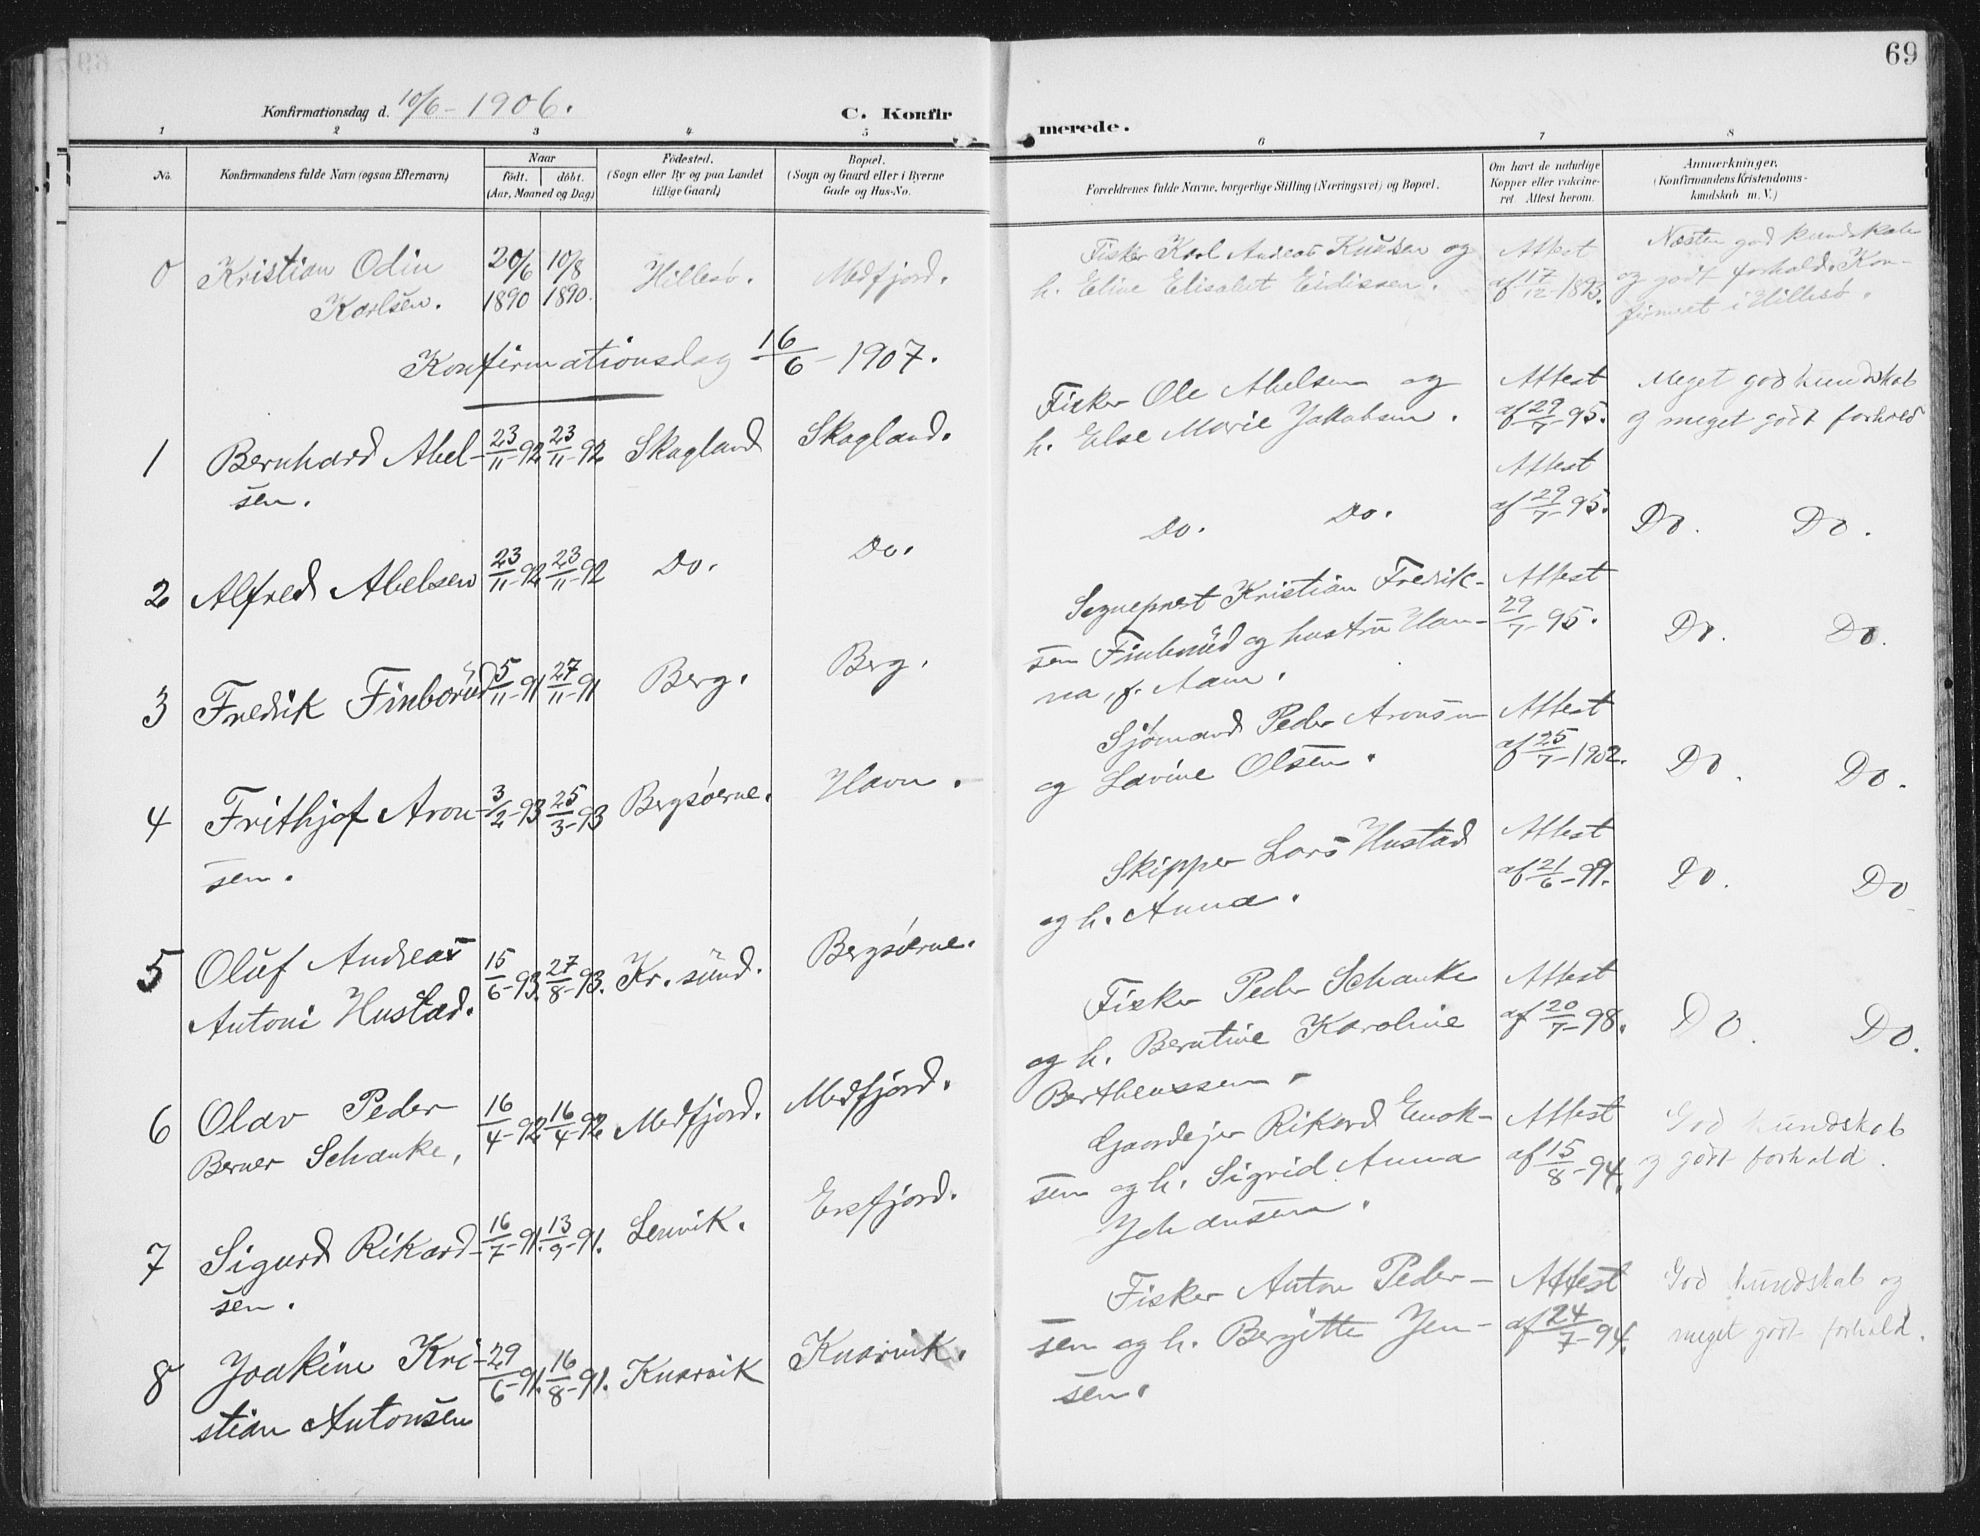 69
Konfirmationsdag d. 10/6-1906.
C. Konfir
merede.
1 2 3 4 5 6 7 8
No.
Konfirmandens fulde Navn (ogsaa Efternavn)
Naar
födt. döbt.
(Aar, Maaned og Dag)
Födested.
(Sogn eller By og paa Landet
tillige Gaard)
Bopæl.
(Sogn og Gaard eller i Byerne
Gade og Hus-No.
Forældrenes fulde Navne, borgerlige Stilling (Næringsvei) og Bopæl.
Om havt de naturlige
Kopper eller vakcine-
ret. Attest herom.
Anmærkninger.
(Konfirmandens Kristendoms-
kundskab m. V.)
0 Kristian Odin
Karlsen.
20/6 1890
10/8 1890.
Hillesø.
Medfjord.
Fisker Karl Andreas Knudsen og
h. Eline Elisabet Eidissen.
Attest
af 17/12-1893.
Næsten god kundskab
og godt forhold. Kon-
firmeet i Hillesø.
Konfirmationsdag 16/6-1907.
1 Bernhard Abel-
sen.
23/11-92
23/11-92
Skagland
Skagland.
Fisker Ole Abelsen og
h. Else Marie Jakobsen.
Attest
af 29/7-95.
Meget god kundskab
og meget godt forhold
2 Alfred Abelsen
23/11-92
23/11-92
Do.
Do.
Do. Do.
Attest
af 29/7-95.
Do. Do.
3 Fredrik Finborüd
5/11-91
27/11-91
Berg.
Berg.
Sogneprest Kristian Fredrik-
sen Finborüd og hustru Han-
na, f. Aam.
Attest
29/7-95.
Do. Do.
4 Frithjof Aron-
sen.
3/2-93
25/3-93
Bergsøerne.
Havn.
Sjømand Peder Aronsen
og Lovine Olsen.
Attest
af 25/7-1902.
Do. Do.
5 Oluf Andreas
Antoni Hustad.
15/6-93.
27/8-93.
Kr. sünd.
Bergsøerne.
Skipper Lars Hustad
og h. Anna.
Attest
af 21/6-99.
Do. Do
6 Olav Peder
Berner Schanke,
16/4-92
16/4-92.
Medfjord.
Medfjord.
Fisker Peder Schanke
og h. Berntine Karoline
Berthenssen.
Attest
af 20/7-98.
Do. Do.
7 Sigurd Rikard-
sen.
16/7-91.
13/9-91.
Lenvik.
Ersfjord.
Gaardejer Rikard Enok-
sen og h. Sigrid Anna
Johansen.
Attest
af 15/8-94.
God kundskab
og godt forhold.
8 Joakim Kri-
stian Antonsen
29/6-91.
16/8-91.
Knarvik
Knarvik.
Fisker Anton Peder-
sen og h. Bergitte Jen-
sen.
Attest
af 24/7-94.
God kundskab og
meget godt forhold.